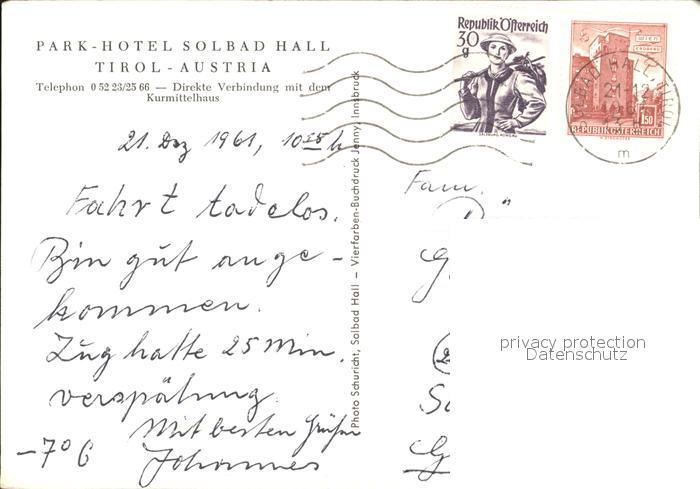 PARK-HOTEL SOLBAD HALL
TIROL - AUSTRIA
Telephon 0 52 23/25 66 — Direkte Verbindung mit dem
Kurmittelhaus
21. Dez 1961, 10 25 h
Fahrt tadelos.
Bin gut ange-
kommen.
Zug hatte 25 Min.
verspätung
Mit besten Grüßen
-7° C Johannes
Photo Schuricht, Solbad Hall – Vierfarben-Buchdruck Jenny, Innsbruck
Republik Österreich
30
g
WIEN
ERDBERG
1.50
REPUBLIK ÖSTERREICH
SOLBAD HALL
21.12
m
Fam.
privacy protection
Datenschutz